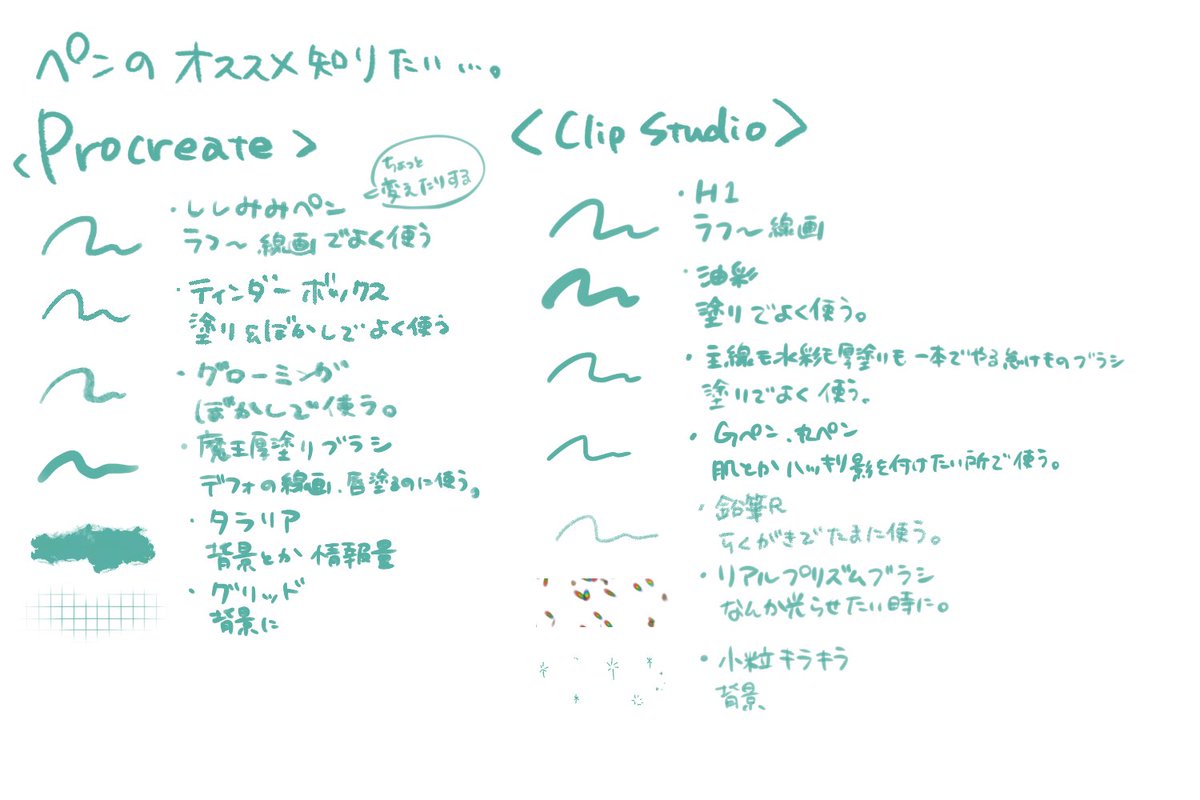 ペンのオススメ知りたい…。
<Procreate>
ちょっと
変えたりする
・ししみみペン
ラフ〜線画でよく使う
・ティンダーボックス
塗り&ぼかしでよく使う
・グローミンガ
ぼかしで使う。
・魔王厚塗りブラシ
デフォの線画、唇塗るのに使う。
・タラリア
背景とか情報量
・グリッド
背景に
<Clip Studio>
・H1
ラフ〜線画
・油彩
塗りでよく使う。
・主線も水彩も厚塗りも一本でやる怠けものブラシ
塗りでよく使う。
・Gペン、丸ペン
肌とかハッキリ影を付けたい所で使う。
・鉛筆R
らくがきでたまに使う。
・リアルプリズムブラシ
なんか光らせたい時に。
・小粒キラキラ
背景、